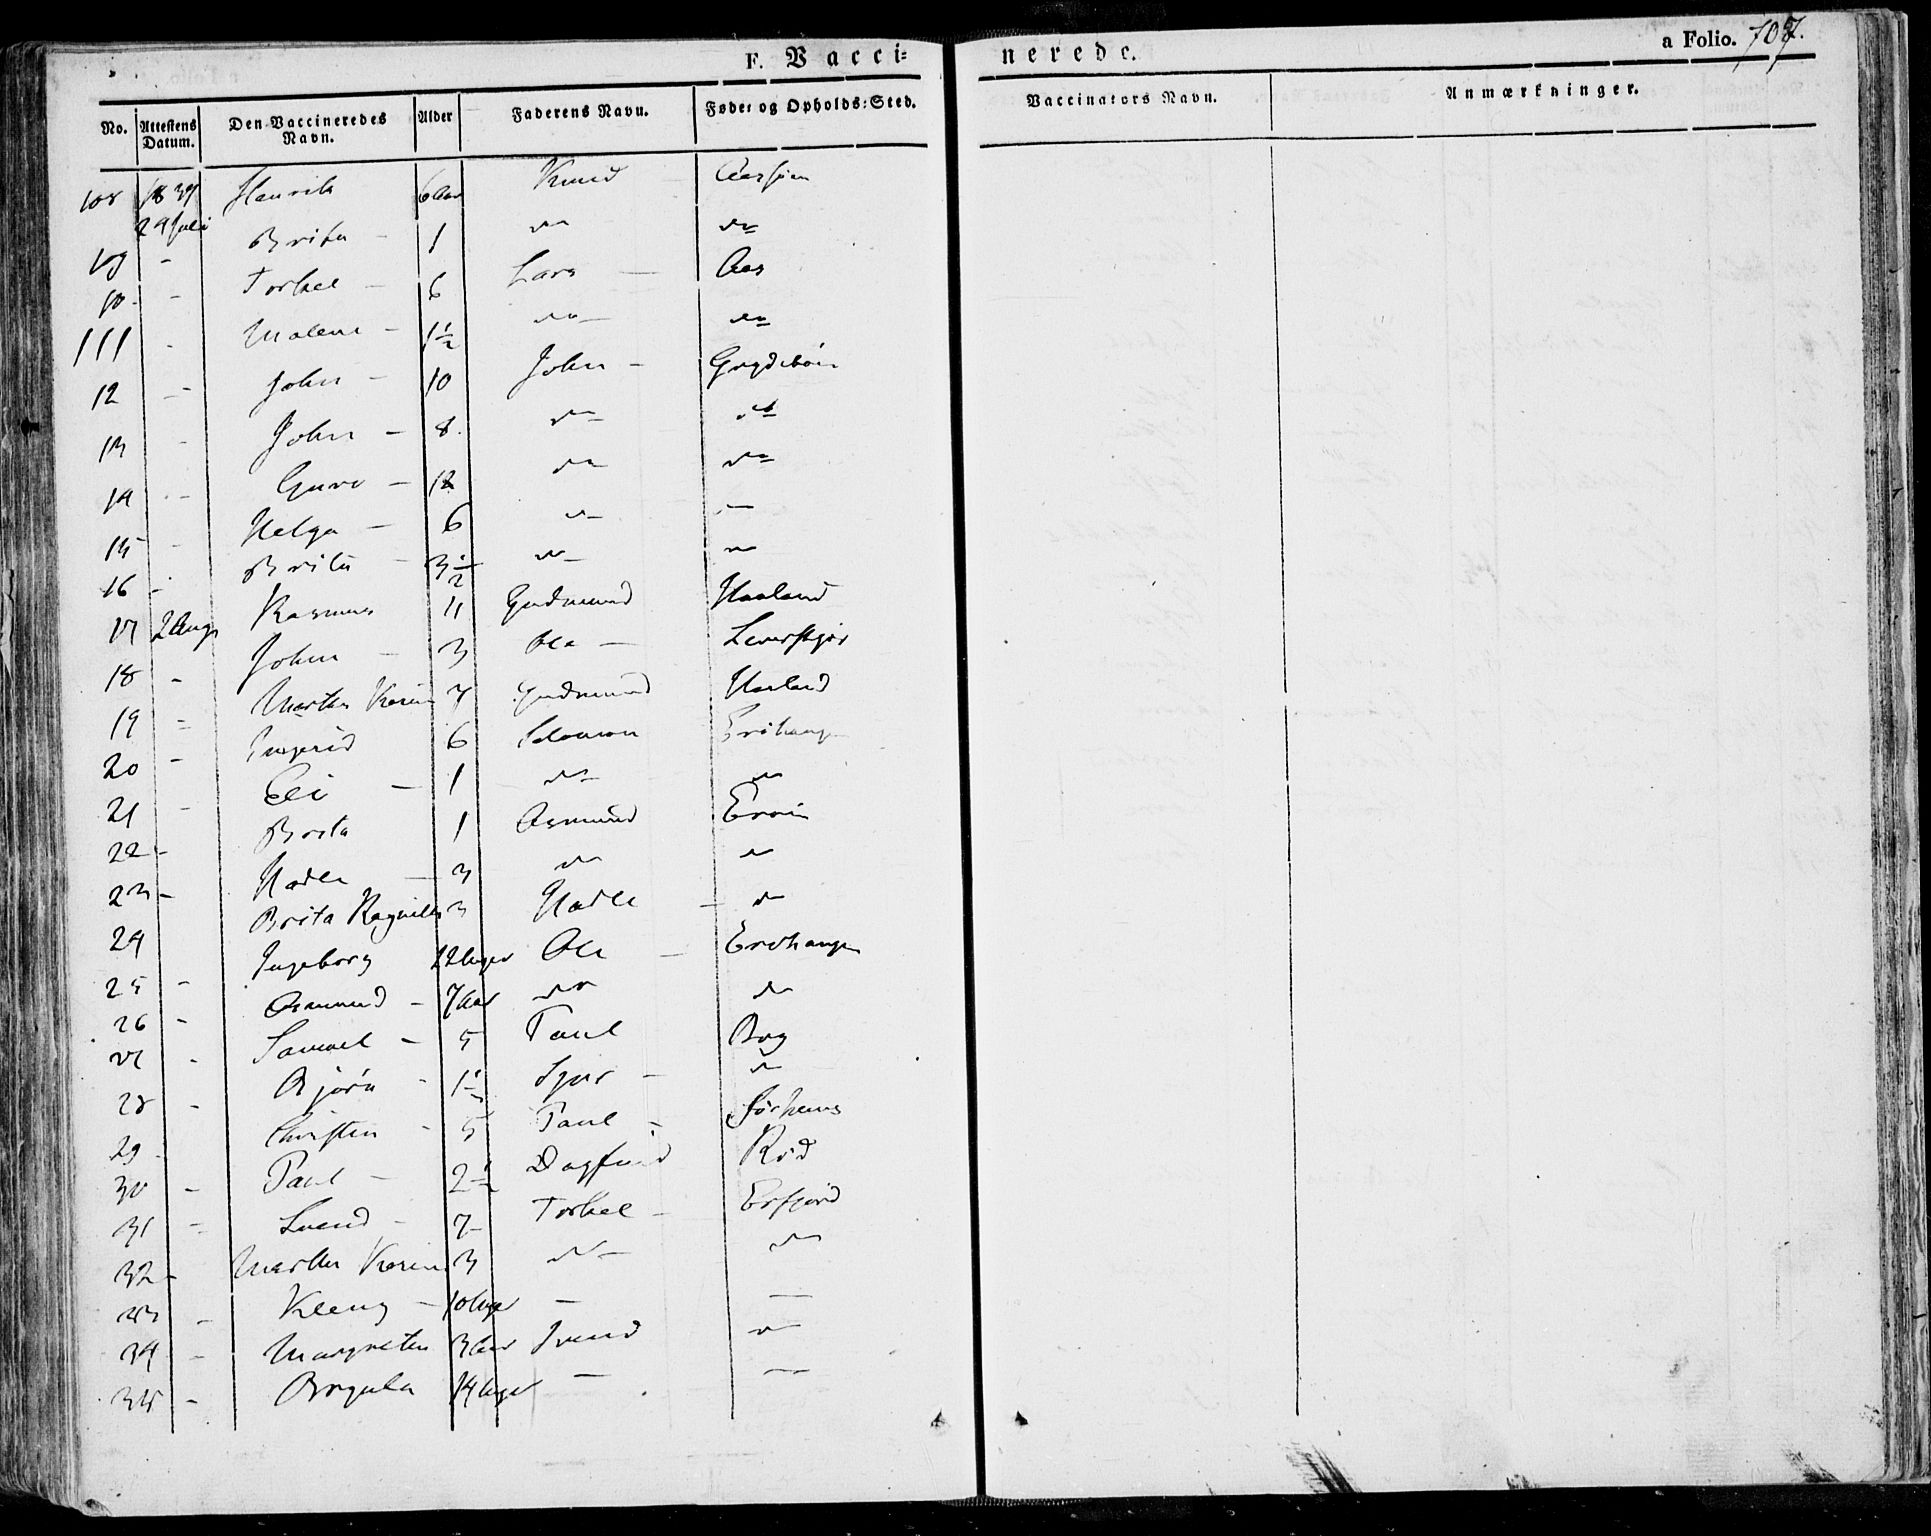 F. Vacci=
nerede.
a Folio. 707.
No. Attestens Datum. Den Vaccineredes Navn. Alder Faderens Navn. Føde= og Opholds=Sted. Vaccinators Navn. Anmærkninger.
108 1839 29 Juli Henrik 6 Aar Knud
109 - Brita - 1 do do
10 - Torkel - 6 Lars - Aas
111 - Malene - 1½ do - do
12 - John - 10 John -
13 - John - 8 do do
14 - Guro - 12 do do
15 - Helga - 6 do -
16 - Brita - 3½ do - do
17 2 Aug Rasmus 11 Gudmund Haaland
18 - John - 3 Ole -
19 - Martha Karin 7 Gudmund Haaland
20 - Ingerid 6 Salomon
21 - Eli - 1 do do
22 - Brita 1 Asmund
23 - Hadle - 3 do do
24 Brita Ragnilda 3 Hadle - do
25 - Ingeborg 12 Uger Ole -
26 - Asmund - 7 Aar do do
27 - Samuel - 5 Paul
28 - Bjørn - 1½ - do
29 - Christen - 5 Paul -
30 - Paul - 2½ Dagfind Rød
31 - Svend - 7 - Torkel - Erfjord
32 - Martha Karin 3 do - do
33 - Kleng - 10 Uger - -
34 - Margretha 3 Aar do
35 - 14 Uger - -